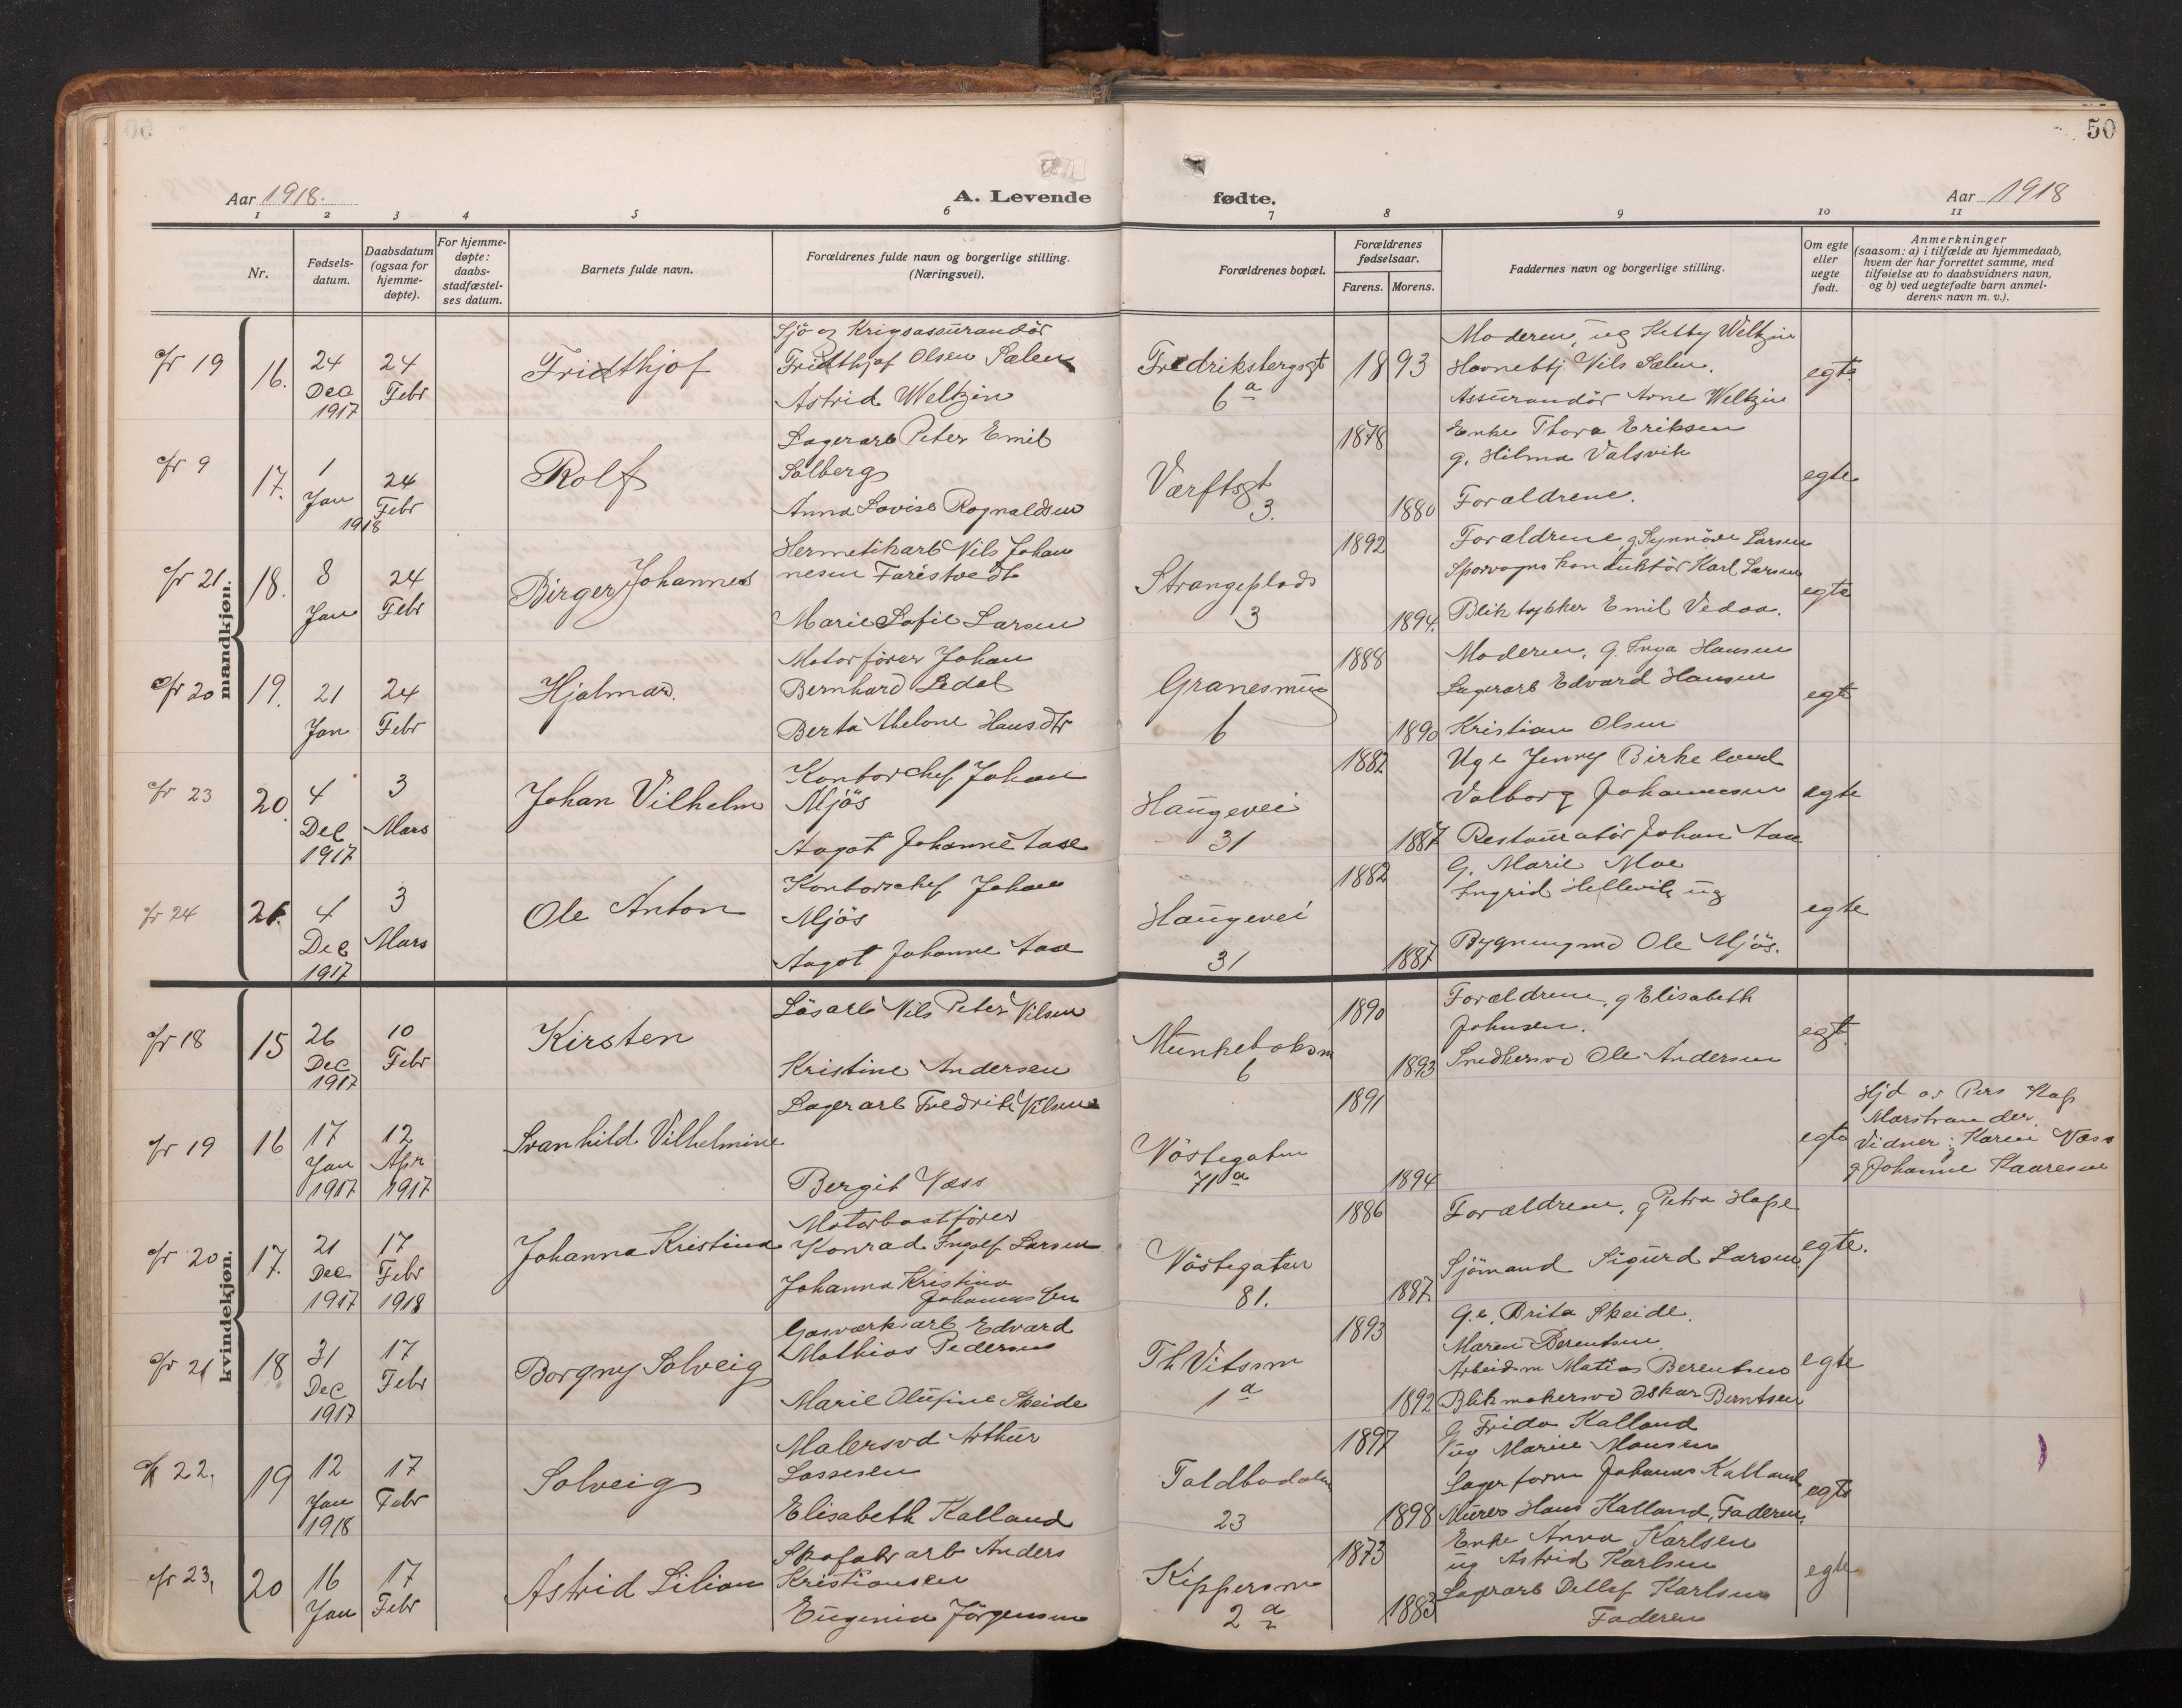 50
Aar 1918.
A. Levende
fødte.
Aar 1918
1 2 3 4 5 6 7 8 9 10 11
Nr.
Fødsels-
datum.
Daabsdatum
(ogsaa for
hjemme-
døpte).
For hjemme-
døpte:
daabs-
stadfæstel-
ses datum.
Barnets fulde navn.
Forældrenes fulde navn og borgerlige stilling.
(Næringsvei).
Forældrenes bopæl.
Forældrenes
fødselsaar.
Farens. Morens.
Faddernes navn og borgerlige stilling.
Om egte
eller
uegte
født.
Anmerkninger
(saasom: a) i tilfælde av hjemmedaab,
hvem der har forrettet samme, med
tilføielse av to daabsvidners navn,
og b) ved uegtefødte barn anmel-
derens navn m. v.).
mandkjøn.
19
16.
24
Dec
1917
24
Febr
Fridthjof
Sjö og Krigsassurandör
Fridthjof Olsen Sælen
Astrid Weltzin
Fredriksbergsgt
6 a
1893
Moderen, ug Ketty Weltzin
Havnebtj Nils Sælen.
Assurandör Arne Weltzin
egte
9
17.
1
Jan
1918
24
Febr
Rolf
Lagerarb Peter Emil
Solberg
Anna Lovise Rognaldsen
Værftsgt
3.
1878
1880
Enke Thora Eriksen
g. Hilma Valsvik
Forældrene.
egte
21.
18.
8
Jan
24
Febr
Birger Johannes
Hermetikarb Nils Johan
nesen Farestvedt
Marie Sofie Larsen
Strangeplads
3
1892
1894.
Forældrene, g Synnöve Larsen
Sporvognskonduktör Karl Larsen
Bliktrykker Emil Vedaa.
egte
20
19.
21
Jan
24
Febr
Hjalmar.
Motorfører Johan
Bernhard Ledal
Berta Helone Hansdtr
Granesmug
6
1888
1890
Moderen, g. Inga Hansen
Lagerarb Edvard Hansen
Kristian Olsen
egte
23
20.
4
Dec
1917
3
Mars
Johan Vilhelm
Kontorchef Johan
Mjös
Aagot Johanne Aase
Haugevei
31
1882
1887
Ug e Jenny Birkelund
Valborg Johannesen
Restauratör Johan Aase
egte
24
21.
4
Dec
1917
3
Mars
Ole Anton
Kontorschef Johan
Mjös
Aagot Johanne Aase
Haugevei
31
1882
1887
G. Marie Moe
Ingrid Hellevik ug
Bygningsmd Ole Mjös.
egte
kvindekjøn.
18
15
26
Dec
1917
10
Febr
Kirsten
Lösarb Nils Peter Nilsen
Kristine Andersen
Munkeboksm
6
1890
1893
Forældrene, g Elisabeth
Johnsen.
Snedkersvd Ole Andersen
egte
19
16
17
Jan
1917
12
Apr
1917
Svanhild Vilhelmine
Lagerarb Fredrik Nilsen
Bergit Næss
Nöstegaten
71 a
1891
1894
egte
Hjd av Pers Kap
Marstrander.
Vidner: Karen Næss
g Johanne Kaaresen
20
17.
21
Dec
1917
17
Febr
1918
Johanna Kristina
Motorbaatfører
Konrad Ingolf Larsen
Johanna Kristina
Johannessen
Nöstegaten
81.
1886
1887.
Forældrene, g Petra Hope
Sjömand Sigurd Larsen
egte.
21
18
31
Dec
1917
17
Febr
Borgny Solveig
Gasværksarb Edvard
Mathias Pedersen
Marie Olufine Skeide
Th Vitssm
1 a
1893
1892
G.e. Brita Skeide.
Maren Berentsen.
Arbeidsm Matias Berentsen
Blikmakersvd Oskar Berntsen
egte
22.
19
12
Jan
1918
17
Febr
Solveig
Malersvd Arthur
Lassesen
Elisabeth Kalland
Toldbodalm
23
1897
1898
G Frida Kalland
ug Marie Monsen
Lagerform Johannes Kalland
Murer Hans Kalland, Faderen.
egte
23,
20
16
Jan
17
Febr
Astrid Lilian
Skofabr arb Anders
Kristiansen
Eugenia Jörgensen
Kippersm
2 a
1873
1883
Enke Anna Karlsen
ug Astrid Karlsen
Lagerarb Detlef Karlsen
Faderen
egte